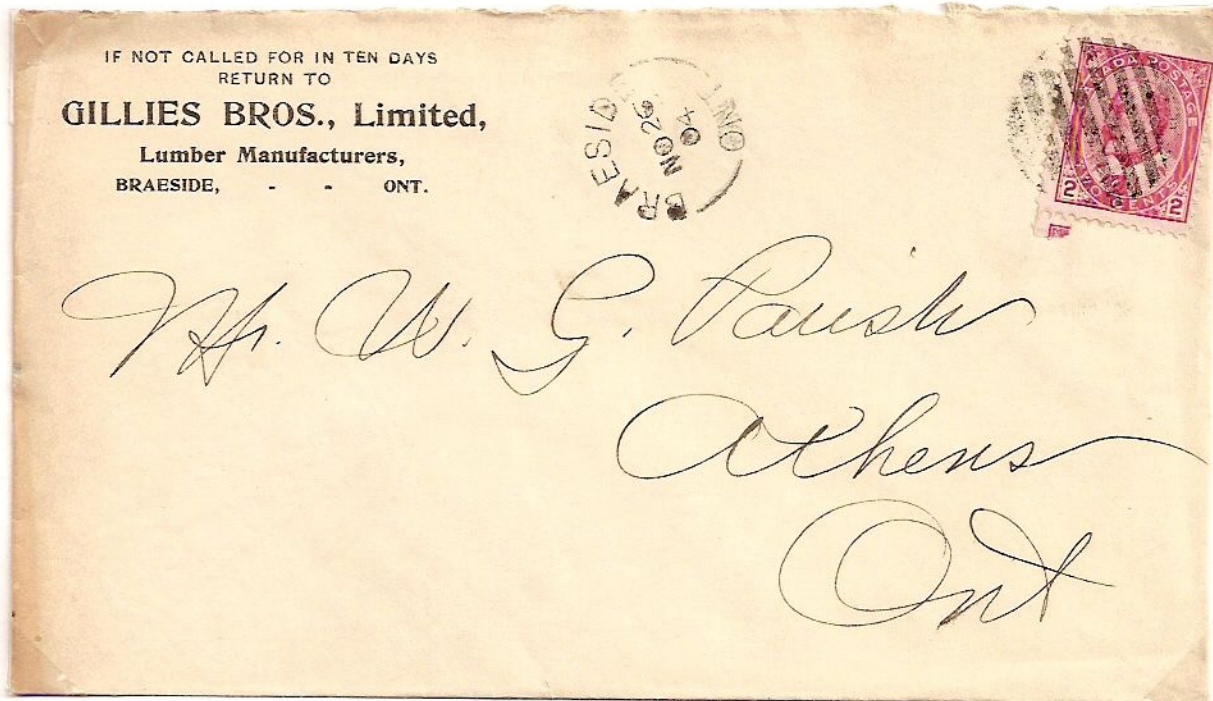 IF NOT CALLED FOR IN TEN DAYS
RETURN TO
GILLIES BROS., Limited,
Lumber Manufacturers,
BRAESIDE, - - ONT.
BRAESIDE ONT
NO 26
04
CANADA POSTAGE
TWO CENTS
2 2
Mr. W. G. Parish
Athens
Ont